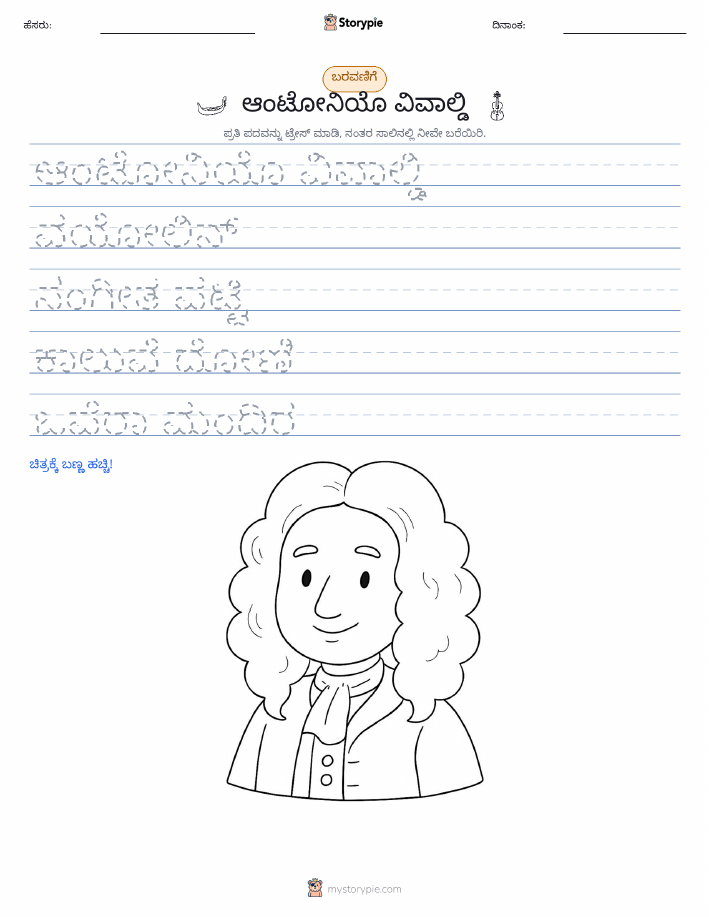 ಹೆಸರು:
Storypie
ದಿನಾಂಕ:
ಬರವಣಿಗೆ
ಆಂಟೋನಿಯೊ ವಿವಾಲ್ಡಿ
ಪ್ರತಿ ಪದವನ್ನು ಟ್ರೇಸ್ ಮಾಡಿ, ನಂತರ ಸಾಲಿನಲ್ಲಿ ನೀವೇ ಬರೆಯಿರಿ.
ಆಂಟೋನಿಯೊ ವಿವಾಲ್ಡಿ
ವಯೋಲಿನ್
ಸಂಗೀತ ಪಟ್ಟಿ
ಕಾಲುವೆ ದೋಣಿ
ಒಪೆರಾ ಮಂದಿರ
ಚಿತ್ರಕ್ಕೆ ಬಣ್ಣ ಹಚ್ಚಿ!
mystorypie.com